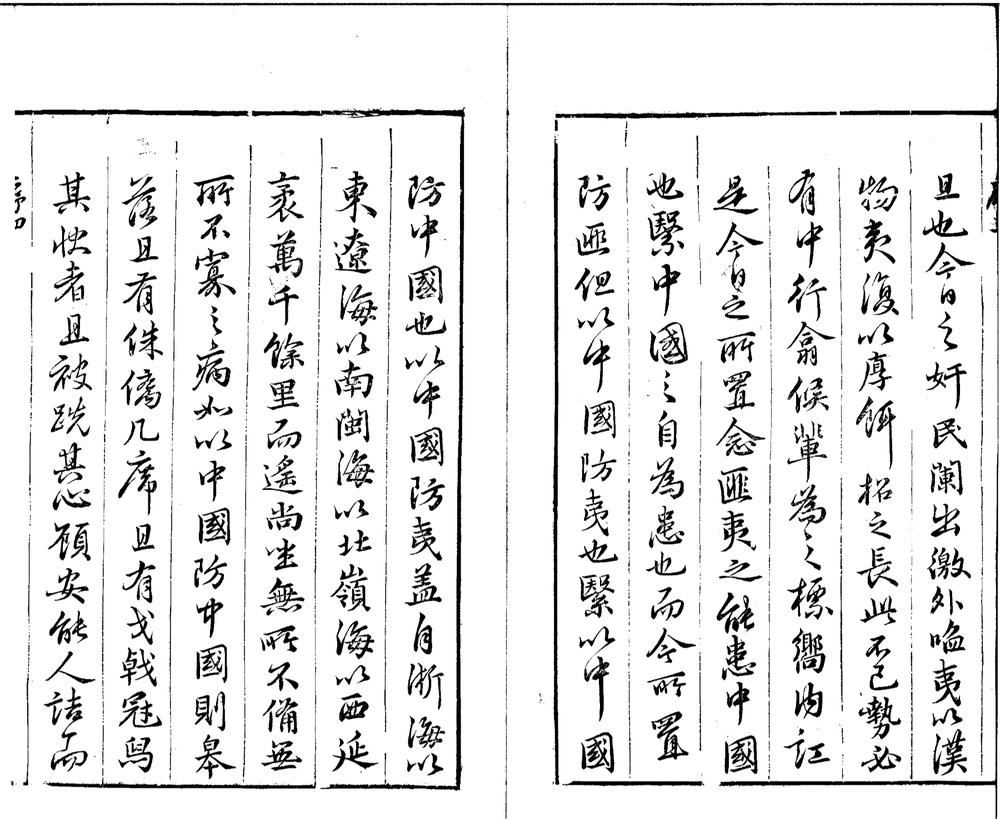 且也今日之奸民闌出徼外啗夷以漢
物夷復以厚餌招之長此不已勢必
有中行翕候輩為之標嚮内訌
是今日之所置念匪夷之能患中國
也緊中國之自為患也而今所置
防匪但以中國防夷也緊以中國
防中國也以中國防夷盖自浙海以
東遼海以南閩海以北嶺海以西延
袤萬千餘里而遙尚坐無所不備無
所不寡之病如以中國防中國則皋
落且有侏僑几席且有戈戟冠舄
其快者且被跣其心顧安能人詰而